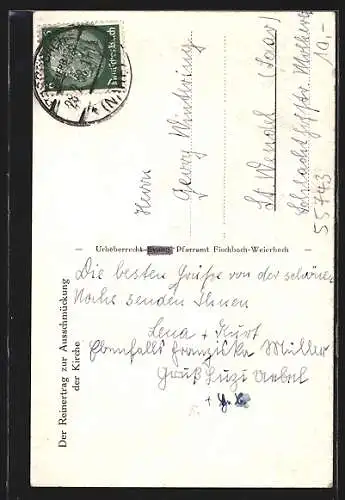 Der Reinertrag zur Ausschmückung
der Kirche
Deutsches Reich
6
Herrn
Georg
St Wendel (Saar)
55743
10,-
Urheberrecht: Evang. Pfarramt Fischbach-Weierbach
Die besten Grüße von der schönen
Nahe senden Ihnen
Lena + Kurt
Ebenfalls Franziska Müller
Gruß Suzi
+